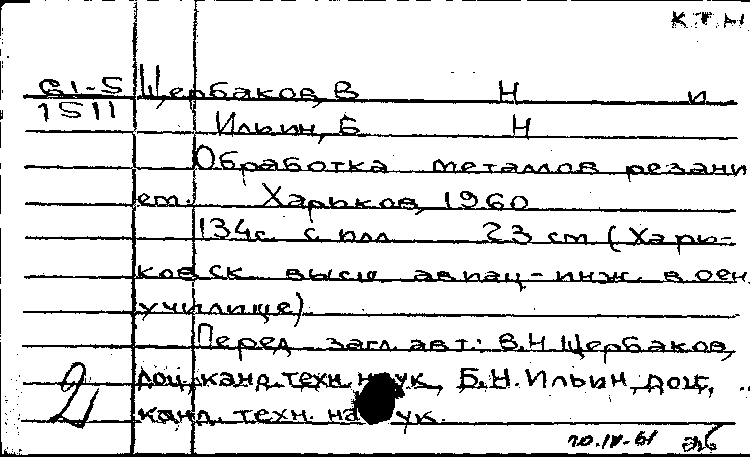 К Т Н
61-5 Щербаков, В Н и
1511 Ильин, Б Н
Обработка металлов резани
ем. Харьков, 1960
134с. с илл 23 см (Харь-
ковск высш авиац-инж. воен
училище).
Перед загл. авт: В.Н. Щербаков,
доц, канд. техн. наук, Б.Н. Ильин, доц,
2 канд. техн. наук.
20.IV-61